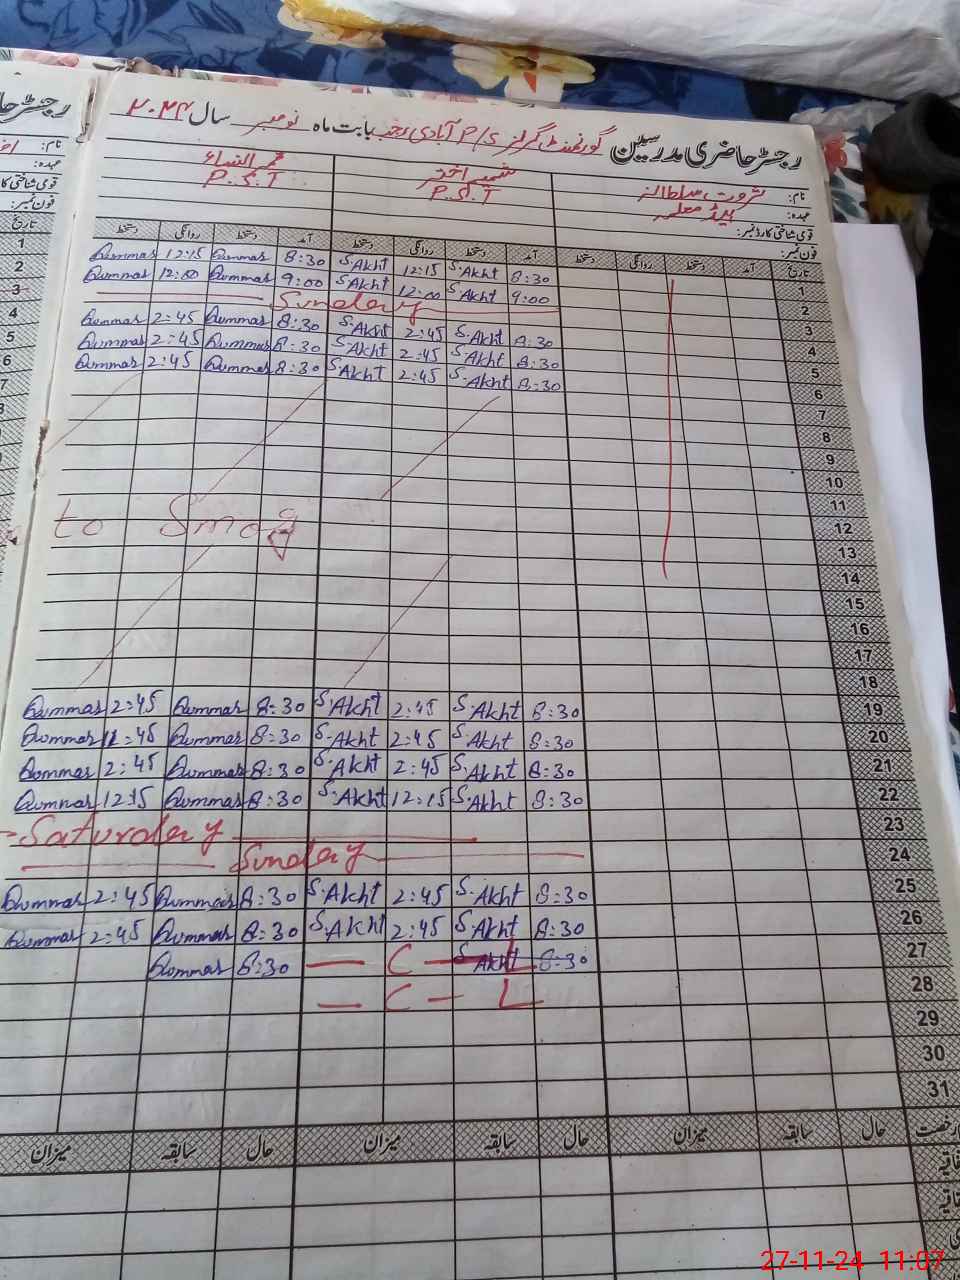 رجسٹر حاضری مدرسین گورنمنٹ گرلز P/S آبادی بابت ماہ نومبر سال ۲۰۲۴
نام: ثروت سلطانہ شمیم اختر قمر النساء
عہدہ: ہیڈ معلمہ P.S.T P.S.T
قومی شناختی کارڈ نمبر:
فون نمبر:
تاریخ آمد دستخط روانگی دستخط آمد دستخط روانگی دستخط آمد دستخط روانگی دستخط
1 8:30 S.Akht 12:15 S.Akht 8:30 Qummas 12:15 Qummas
2 9:00 S.Akht 12:00 S.Akht 9:00 Qummas 12:00 Qummas
3 Sunday
4 8:30 S.Akht 2:45 S.Akht 8:30 Qummas 2:45 Qummas
5 8:30 S.Akht 2:45 S.Akht 8:30 Qummas 2:45 Qummas
6 8:30 S.Akht 2:45 S.Akht 8:30 Qummas 2:45 Qummas
7
8
9
10
11
12 to Smog
13
14
15
16
17
18
19 8:30 S.Akht 2:45 S.Akht 8:30 Qummas 2:45 Qummas
20 8:30 S.Akht 2:45 S.Akht 8:30 Qummas 2:45 Qummas
21 8:30 S.Akht 2:45 S.Akht 8:30 Qummas 2:45 Qummas
22 8:30 S.Akht 12:15 S.Akht 8:30 Qummas 12:15 Qummas
23 Saturday
24 Sunday
25 8:30 S.Akht 2:45 S.Akht 8:30 Qummas 2:45 Qummas
26 8:30 S.Akht 2:45 S.Akht 8:30 Qummas 2:45 Qummas
27 8:30 S.Akht C L 8:30 Qummas
28 C L
29
30
31
رخصت حال سابقہ میزان حال سابقہ میزان حال سابقہ میزان
27-11-24 11:07